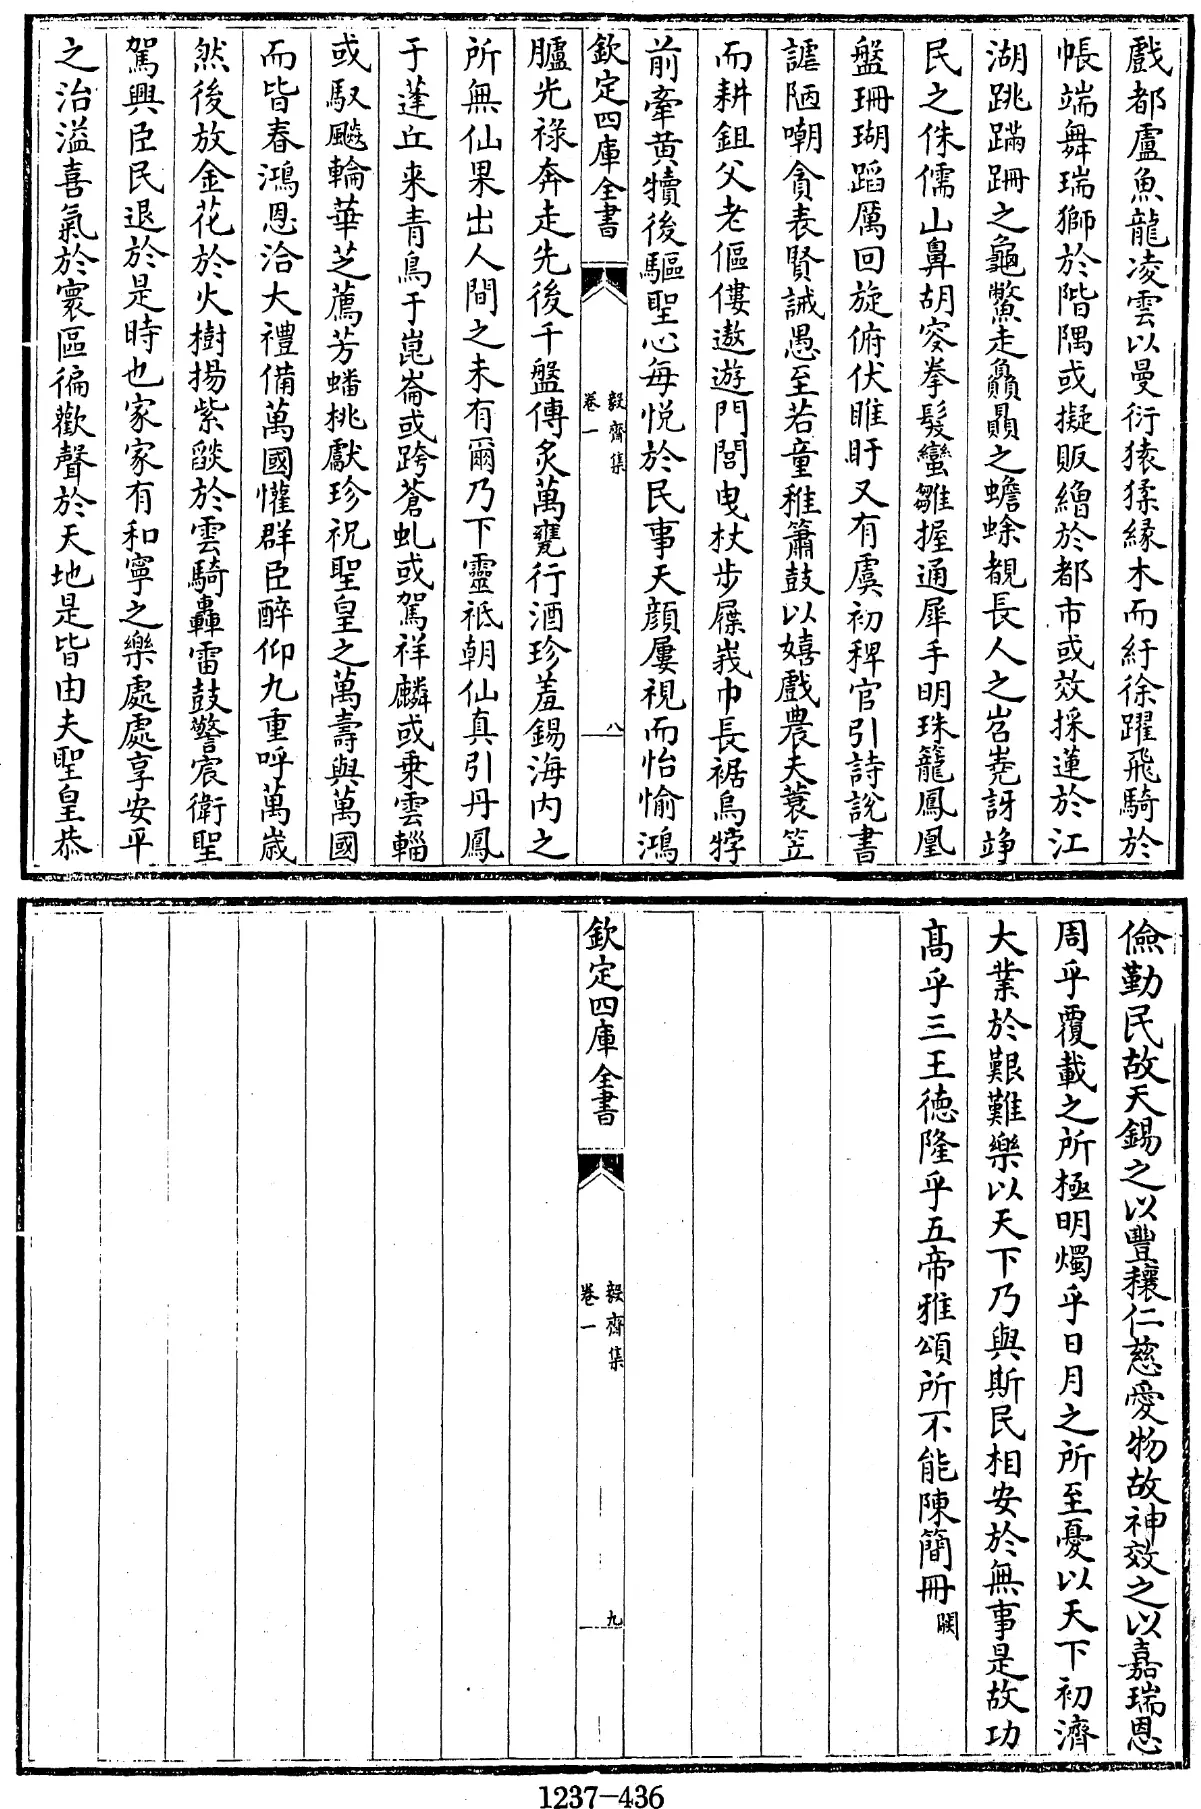 戲都盧魚龍凌雲以曼衍猿猱緣木而紆徐躍飛騎於
帳端舞瑞獅於階隅或擬販繒於都市或效採蓮於江
湖跳蹣跚之龜鱉走贔屭之蟾蜍覩長人之岧嶤訝竫
民之侏儒山鼻胡容拳髮蠻雛握通犀手明珠籠鳳凰
盤珊瑚蹈厲回旋俯伏睢盱又有虞初稗官引詩說書
謔陋嘲貪表賢誡愚至若童稚簫鼓以嬉戲農夫蓑笠
而耕鉏父老傴僂遨遊門閭曳杖步屧峩巾長裾烏犉
前牽黃犢後驅聖心每悅於民事天顏屢視而怡愉鴻
欽定四庫全書
毅齋集
卷一
八
臚光祿奔走先後千盤傳炙萬甕行酒珍羞錫海内之
所無仙果出人間之未有爾乃下靈祗朝仙真引丹鳳
于蓬丘来青鳥于崑崙或跨蒼虬或駕祥麟或乗雲輜
或馭飈輪華芝薦芳蟠桃獻珍祝聖皇之萬壽與萬國
而皆春鴻恩洽大禮備萬國懽群臣醉仰九重呼萬歲
然後放金花於火樹揚紫燄於雲騎轟雷鼓警宸衛聖
駕興臣民退於是時也家家有和寧之樂處處享安平
之治溢喜氣於寰區徧歡聲於天地是皆由夫聖皇恭
儉勤民故天錫之以豐穰仁慈愛物故神效之以嘉瑞恩
周乎覆載之所極明燭乎日月之所至憂以天下初濟
大業於艱難樂以天下乃與斯民相安於無事是故功
髙乎三王德隆乎五帝雅頌所不能陳簡冊闕
欽定四庫全書
毅齋集
卷一
九
1237-436